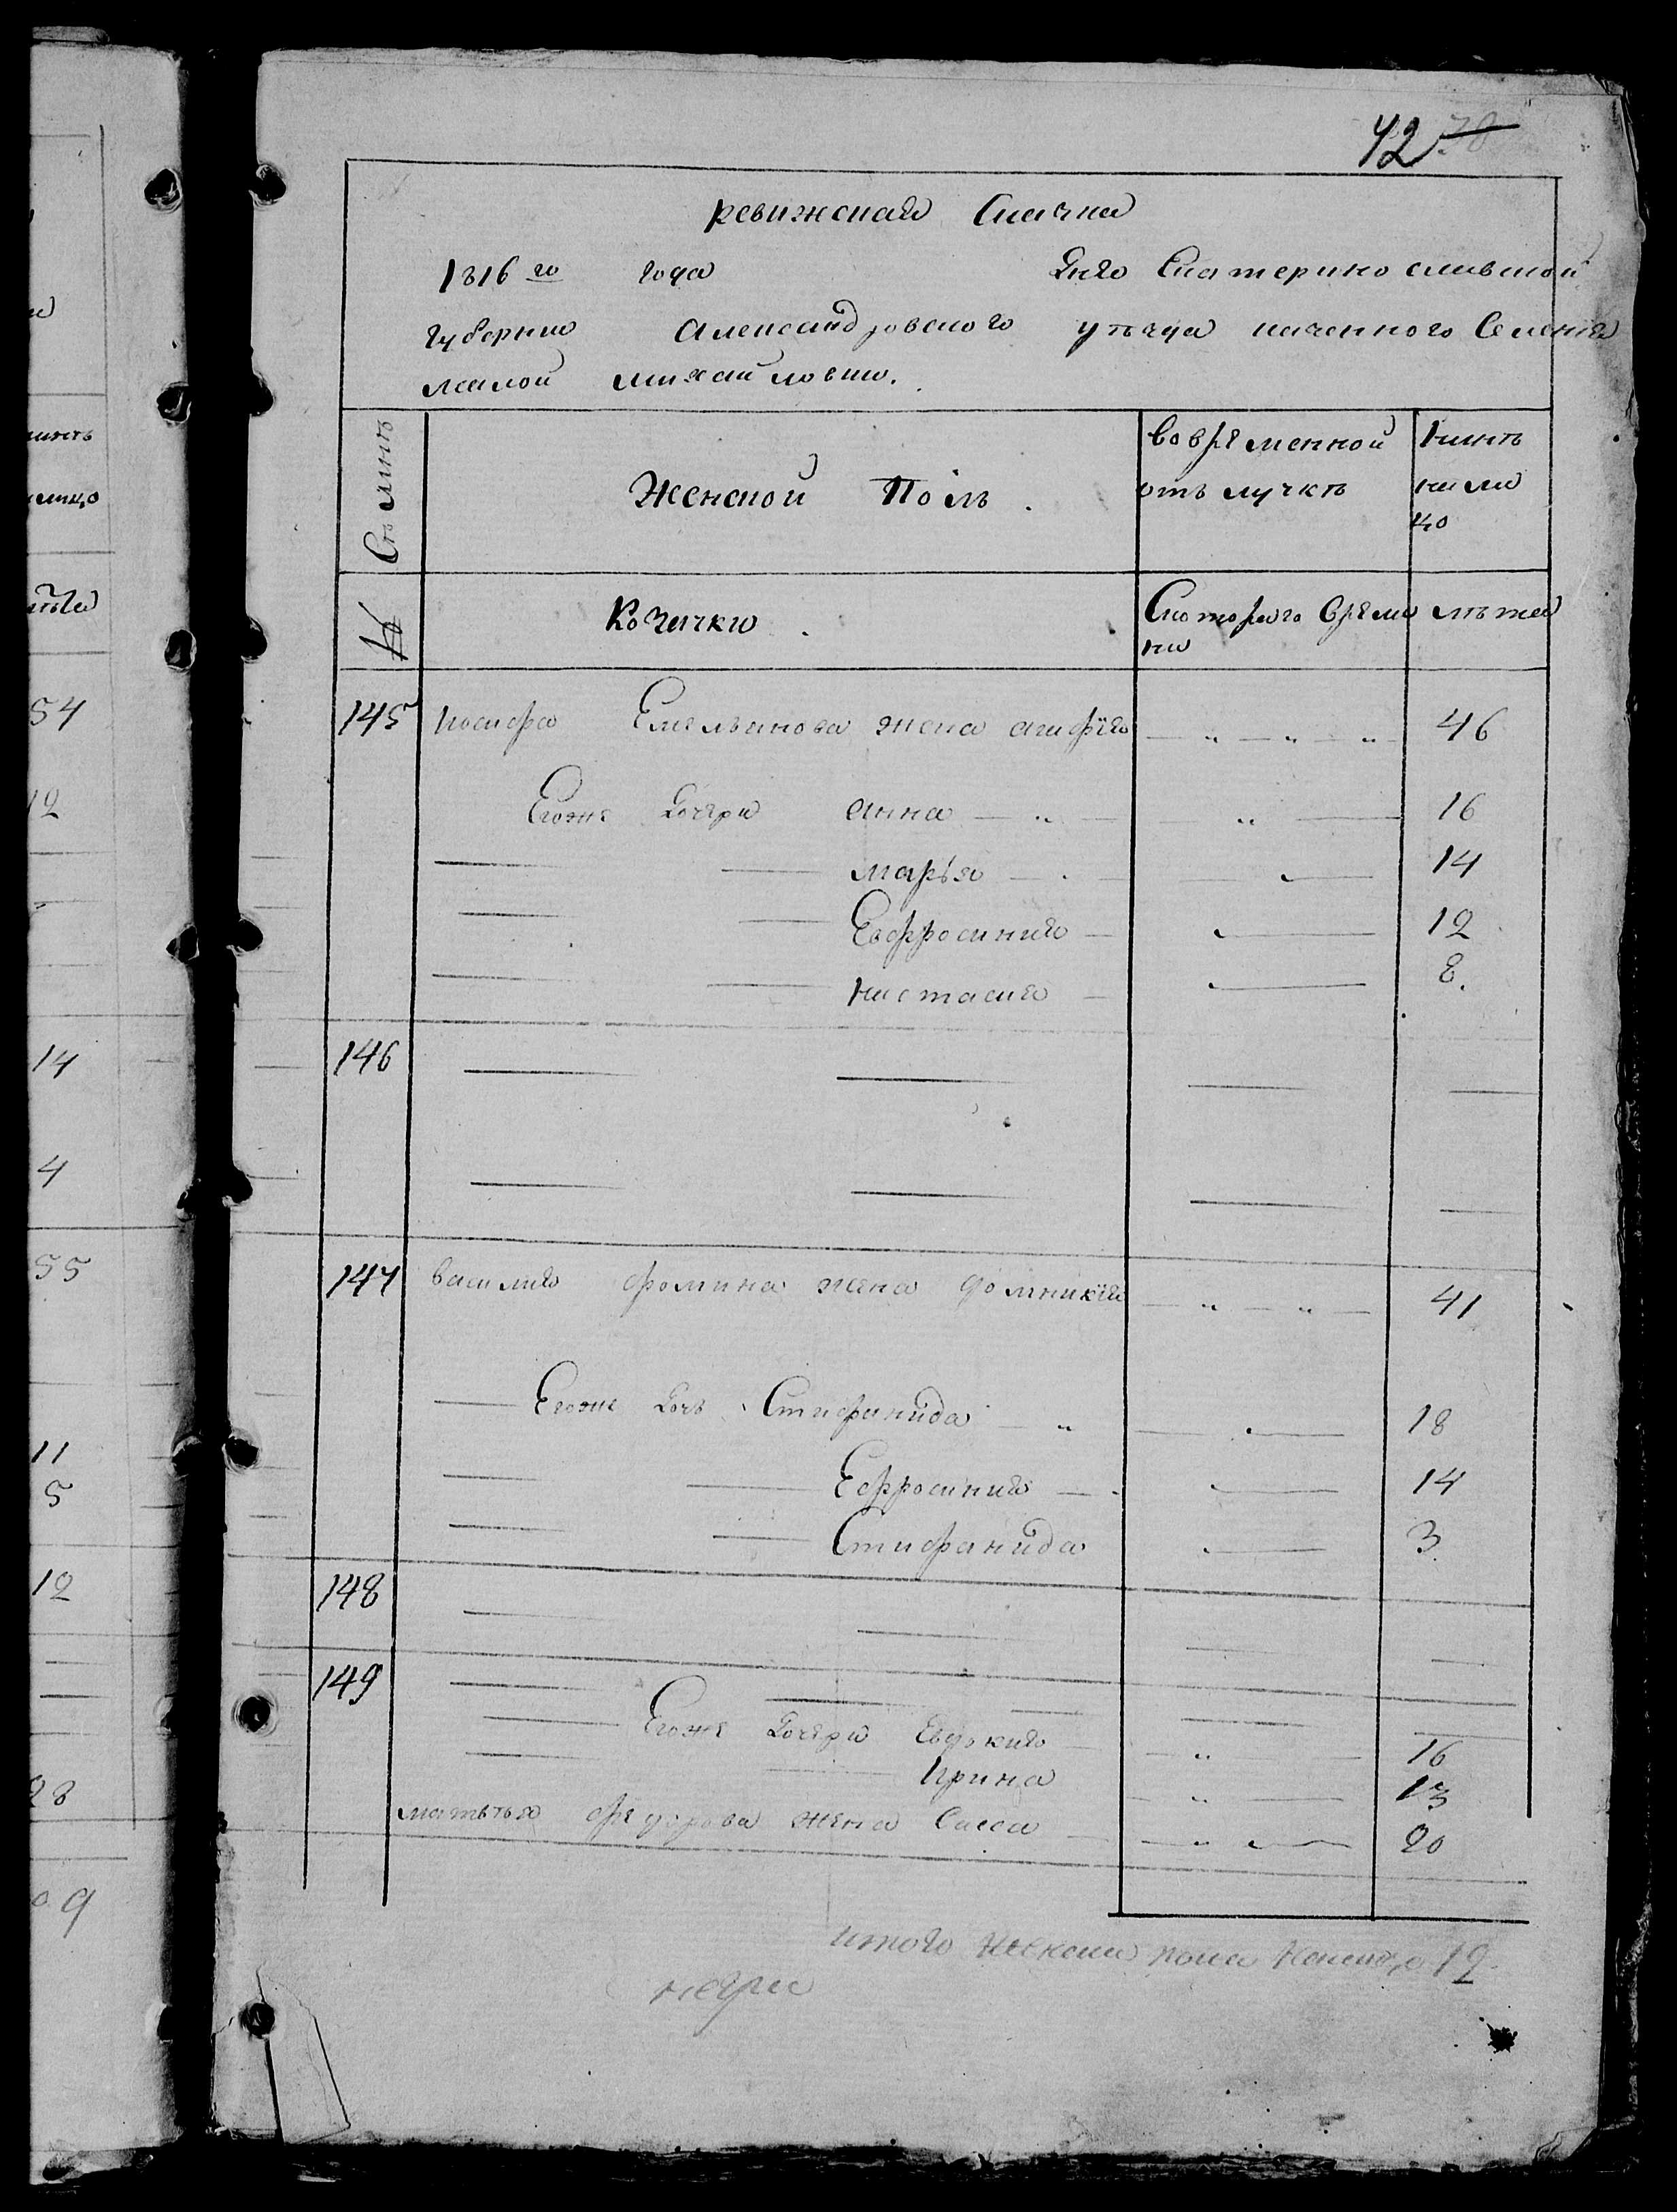 42 70
ревижская Скаска
1816 го года дня Екатеринославской
губернии Александровского уезда казенного Селения
малой михайловки.
Семии
Женской Полъ.
во временной
отъ лучкѣ
нынѣ
на ли
цо
№
Козачки.
Скоторого Время
ни
лѣта
145 иосифа Емельянова жена агафiя — „ — „ — „ 46
Егоже дочери анна — „ — „ — 16
марья 14
Евфросиния 12
настасия 8.
146
147 василия фомина жена домникiя — „ — „ — 41
Егоже дочь Стифанида — „ 18
Ефросиния 14
Стифанида 3
148
149
Егоже дочери Евдокия — „ — 16
Ирина — „ — 13
матвѣя федорова жена 20
итого женска пола налицо 12
54
12
14
4
55
11
5
12
28
9